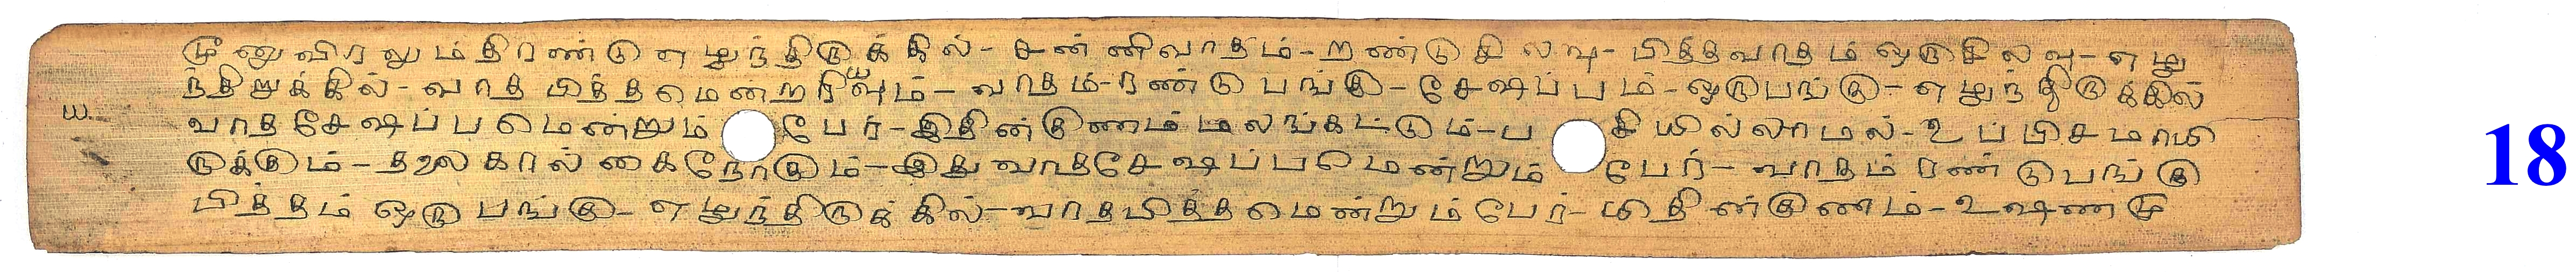 மூனு விரலும் திரண்டு எழுந்திருக்கில் - சன்னிவாதம் - றண்டு சிலவு - பித்தவாதம் ஒரு சிலவு - எழு
ந்திறுக்கில் - வாத பித்தமென்றறியவும் - வாதம் - ரண்டு பங்கு - சேஷப்பம் - ஒருபங்கு - எழுந்திருக்கில்
வாதசேஷப்பமென்றும் பேர் - இதின்குணம் மலங்கட்டும் - பசியில்லாமல் - உப்பிசமாயி
ருக்கும் - தலை கால் கைநோகும் - இது வாதசேஷப்பமென்றும் பேர் - வாதம் ரண்டு பங்கு
பித்தம் ஒரு பங்கு - எழுந்திருக்கில் - வாதபித்தமென்றும் பேர் - யிதின்குணம் - உஷணமூ
ய
18